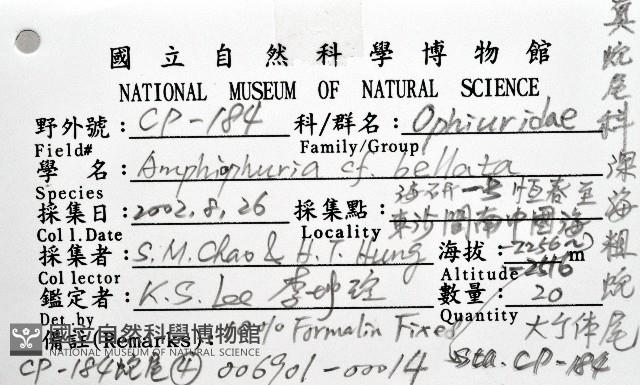 國立自然科學博物館
NATIONAL MUSEUM OF NATURAL SCIENCE
野外號：CP-184 科/群名：Ophiuridae
Field# Family/Group
學名：Amphiophiura cf. bellata
Species
海研一号 恆春至
採集日：2002.8.26 採集點：東沙間南中國海
Coll.Date Locality
採集者：S.M. Chao & H.T. Hung 海拔：-2256~ m
Collector Altitude -2516
鑑定者：K.S. Lee 李坤瑄 數量：20
Det.by Quantity
備註(Remarks)： % Formalin Fixed 大个体
國立自然科學博物館
NATIONAL MUSEUM OF NATURAL SCIENCE
CP-184蛇尾④ 006901-00014 Sta. CP-184
真蛇尾科 深海粗蛇尾